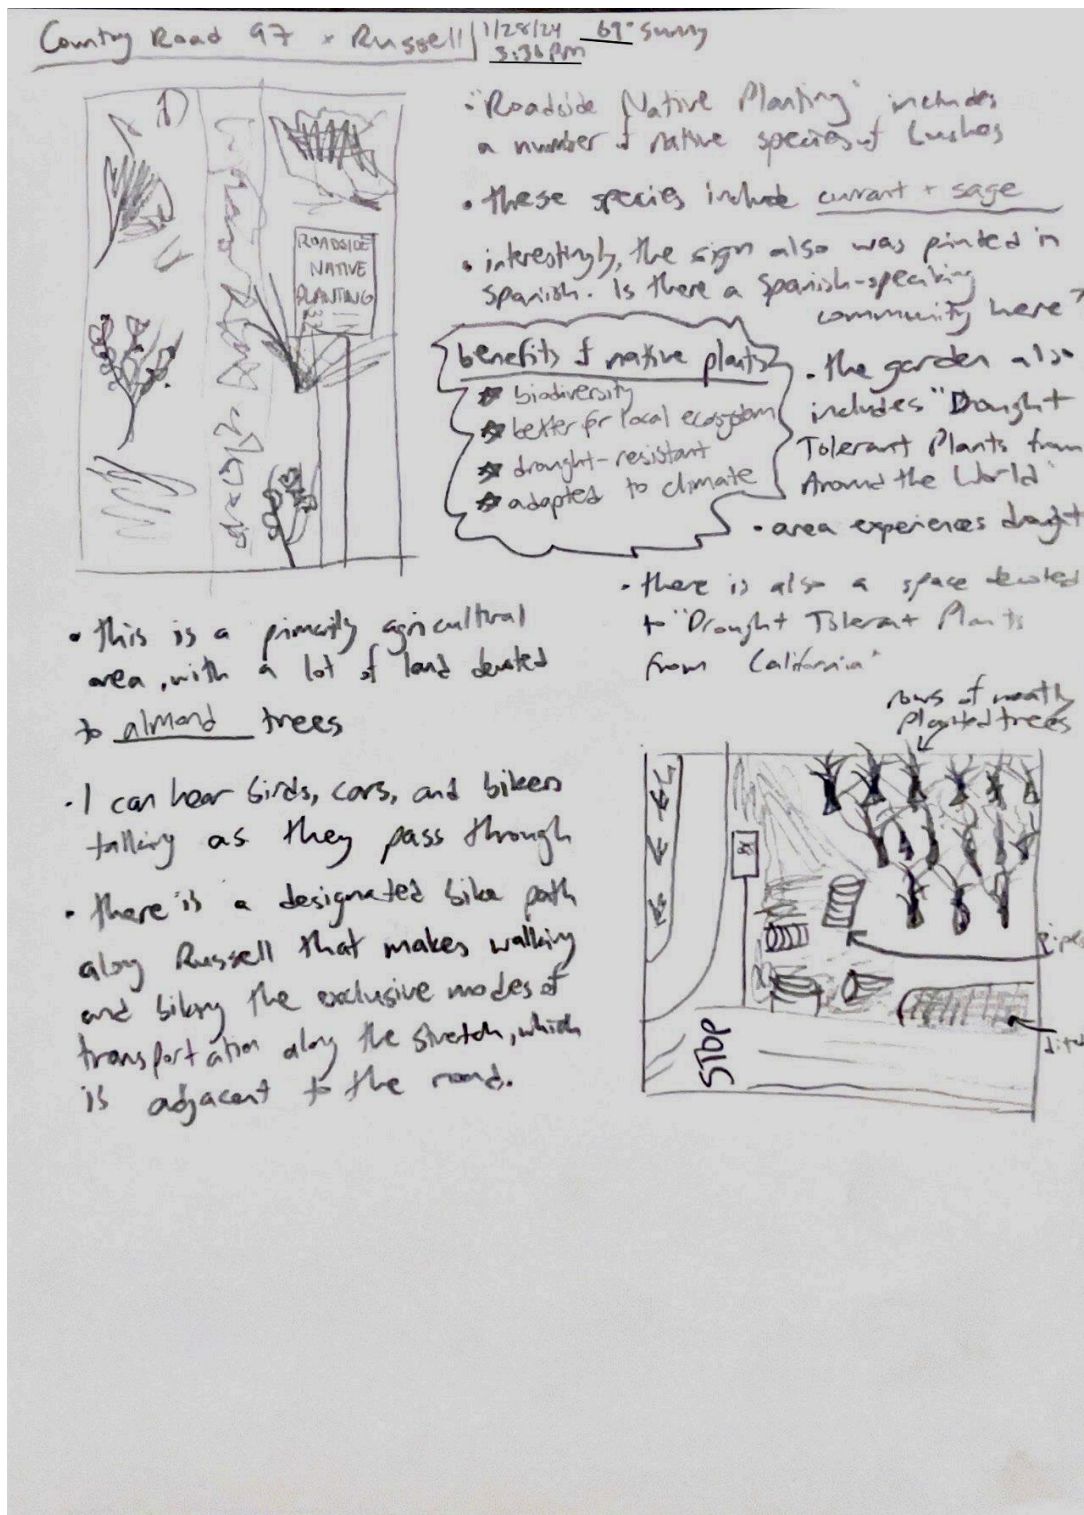 Country Road 97 x Russell
1/28/24 69° Sunny
3:36 PM
• "Roadside Native Planting" includes
a number of native species of bushes
• these species include currant + sage
• interestingly, the sign also was printed in
Spanish. Is there a Spanish-speaking
community here?
ROADSIDE
NATIVE
PLANTING
benefits of native plants
biodiversity
better for local ecosystem
drought-resistant
adapted to climate
• the garden also
includes "Drought
Tolerant Plants from
Around the World"
• area experiences drought
• there is also a space devoted
to "Drought Tolerant Plants
from California"
• this is a primarily agricultural
area, with a lot of land devoted
to almond trees
• I can hear birds, cars, and bikers
talking as they pass through
• there is a designated bike path
along Russell that makes walking
and biking the exclusive modes of
transportation along the stretch, which
is adjacent to the road.
rows of neatly
planted trees
STOP